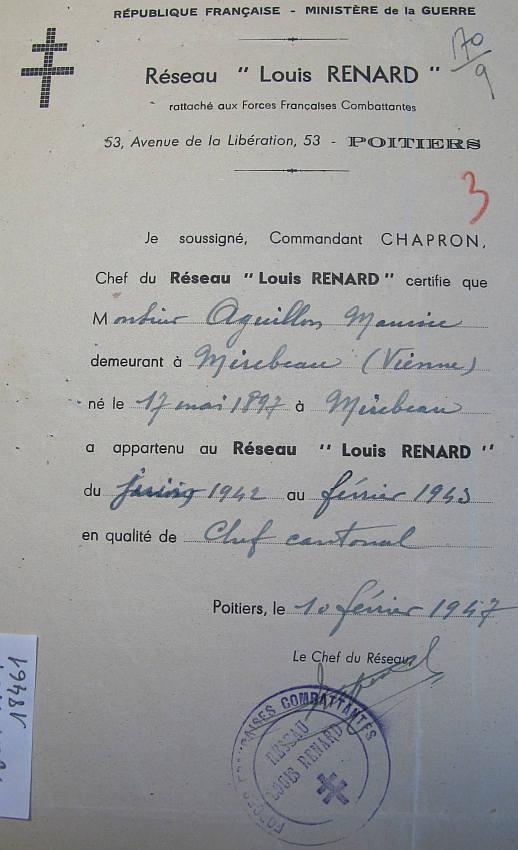 RÉPUBLIQUE FRANÇAISE - MINISTÈRE de la GUERRE
170
9
Réseau " Louis RENARD "
rattaché aux Forces Françaises Combattantes
53, Avenue de la Libération, 53 - POITIERS
3
Je soussigné, Commandant CHAPRON,
Chef du Réseau "Louis RENARD" certifie que
Monsieur Aguillon Maurice
demeurant à Mirebeau (Vienne)
né le 17 mai 1897 à Mirebeau
a appartenu au Réseau " Louis RENARD "
du 1942 au février 1943
en qualité de Chef cantonal
Poitiers, le 10 février 1947
Le Chef du Réseau,
FORCES FRANÇAISES COMBATTANTES
RÉSEAU
LOUIS RENARD
18461